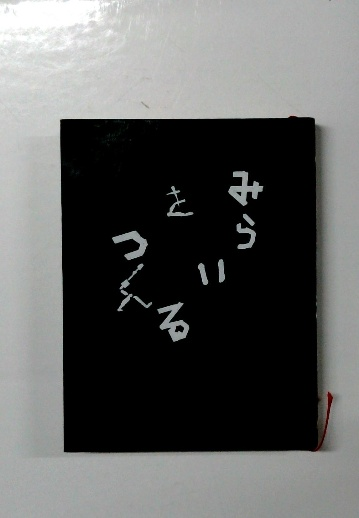 みらい
を
つくる